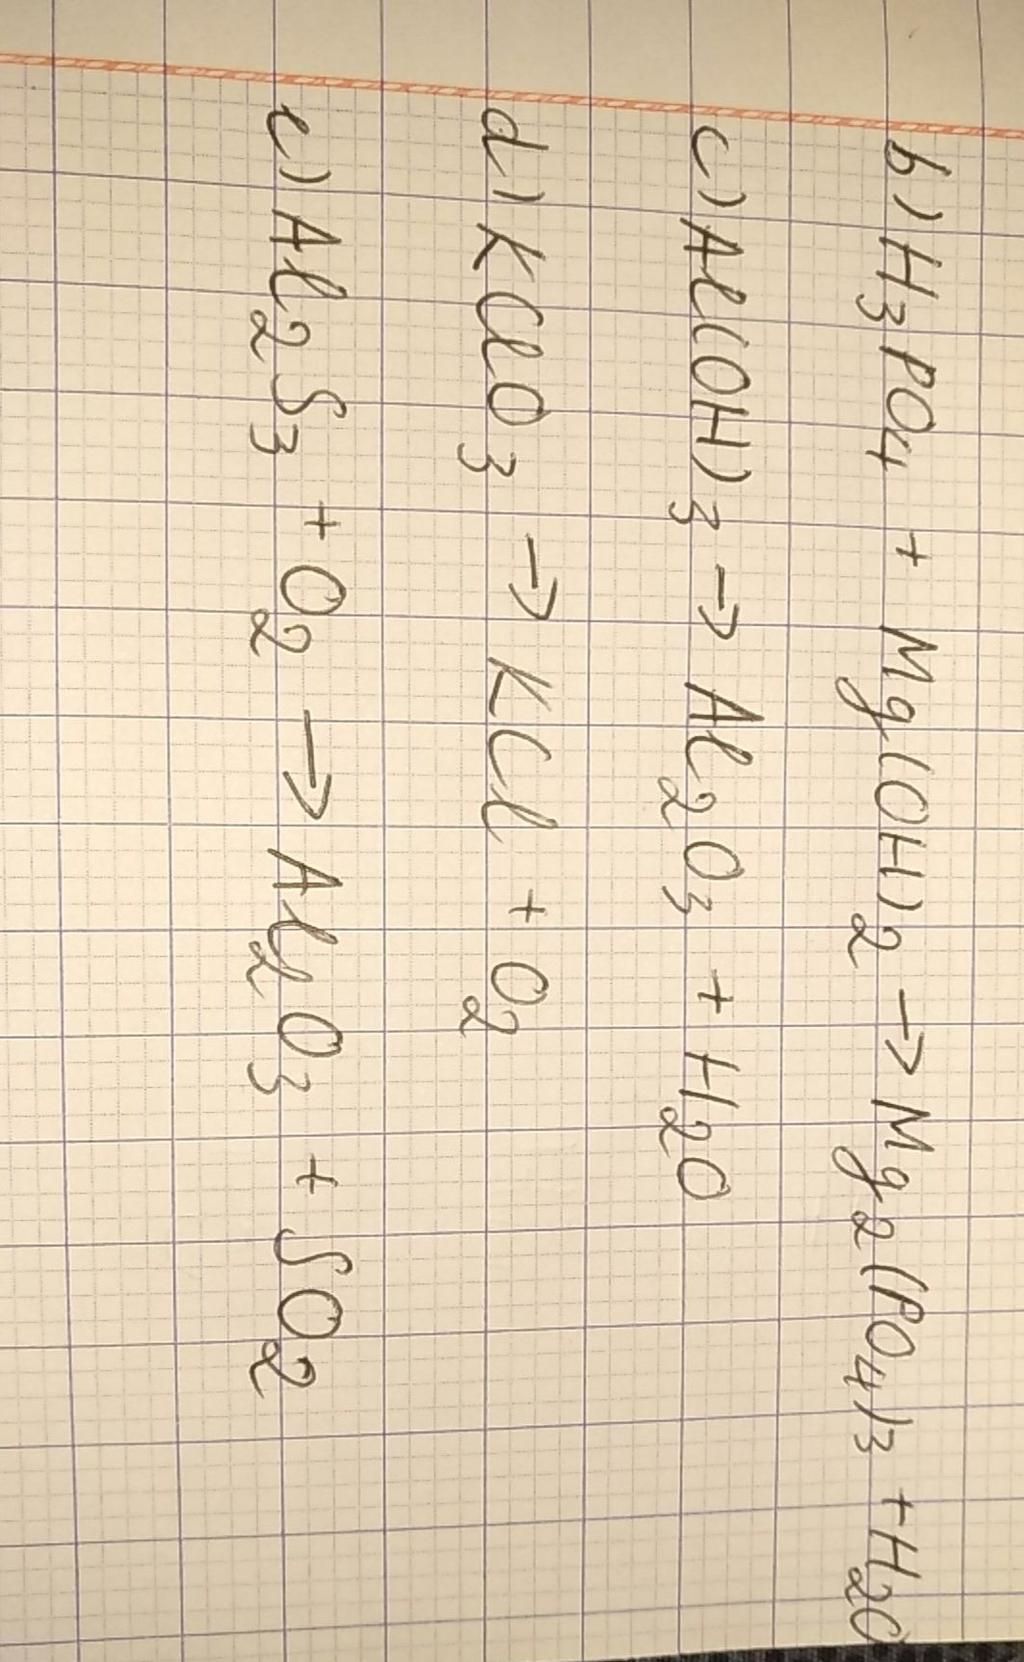 b) H₃PO₄ + Mg(OH)₂ → Mg₂(PO₄)₃ + H₂O
c) Al(OH)₃ → Al₂O₃ + H₂O
d) KClO₃ → KCl + O₂
e) Al₂S₃ + O₂ → Al₂O₃ + SO₂